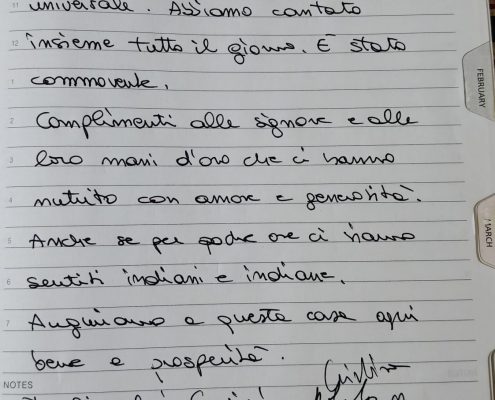 universale. Abbiamo cantato
insieme tutto il giorno. È stato
commovente.
Complimenti alle signore e alle
loro mani d'oro che ci hanno
nutrito con amore e generosità.
Anche se per poche ore ci hanno
sentiti indiani e indiane.
Auguriamo a questa casa ogni
bene e prosperità.
Giulia
11
12
1
2
3
4
5
6
7
NOTES
FEBRUARY
MARCH